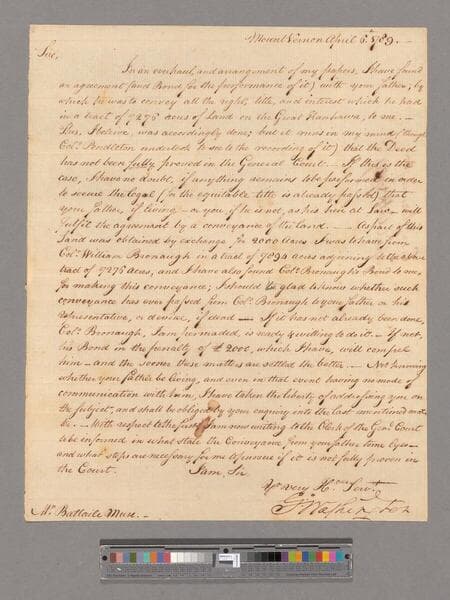 Mount Vernon April 6th 1789.—
Sir,
In an overhaul, and arrangement of my papers, I have found
an agreement (and Bond for the performance of it) with your father; by
which he was to convey all the right, title, and interest which he had
in a tract of 7276 acres of Land on the Great Kanhawa, to me.—
This, I believe, was accordingly done; but it runs in my mind (though
Colo. Pendleton undertook to me to the recording of it) that the Deed
has not been fully proved in the General Court.— If this is the
case, I have no doubt, if anything remains to be performed in order
to secure the legal (for the equitable title is already passed) that
your Father, if living—or you if he is not, as his heir at Law—will
fulfil the agreement by a conveyance of the land.— As part of this
Land was obtained by exchange for 2000 Acres I was to have from
Colo. William Bronaugh in a tract of 7094 acres adjoining to the above
tract of 7276 Acres, and I have also found Colo. Bronaugh's Bond to me,
for making this conveyance; I should be glad to know whether such
conveyance has ever passed from Colo. Bronaugh to your father or his
representative, or devisee, if dead— If it has not already been done
Colo. Bronaugh, I am persuaded, is ready & willing to do it.— If not,
his Bond in the penalty of £2000, which I have, will compel
him—and the sooner these matters are settled the better.— Not knowing
whether your father be living, and even in that event having no mode of
communication with him, I have taken the liberty of addressing you on
the subject, and shall be obliged by your enquiry into the last mentioned mat-
ter.— With respect to the first, I am now writing to the Clerk of the Genl. Court
to be informed in what state the Conveyance from your father to me lyes—
and what steps are necessary for me to pursue if it is not fully proven in
the Court. I am, Sir
Yr. very Hble. Servt.
Go. Washington
Mr. Battaile Muse.—